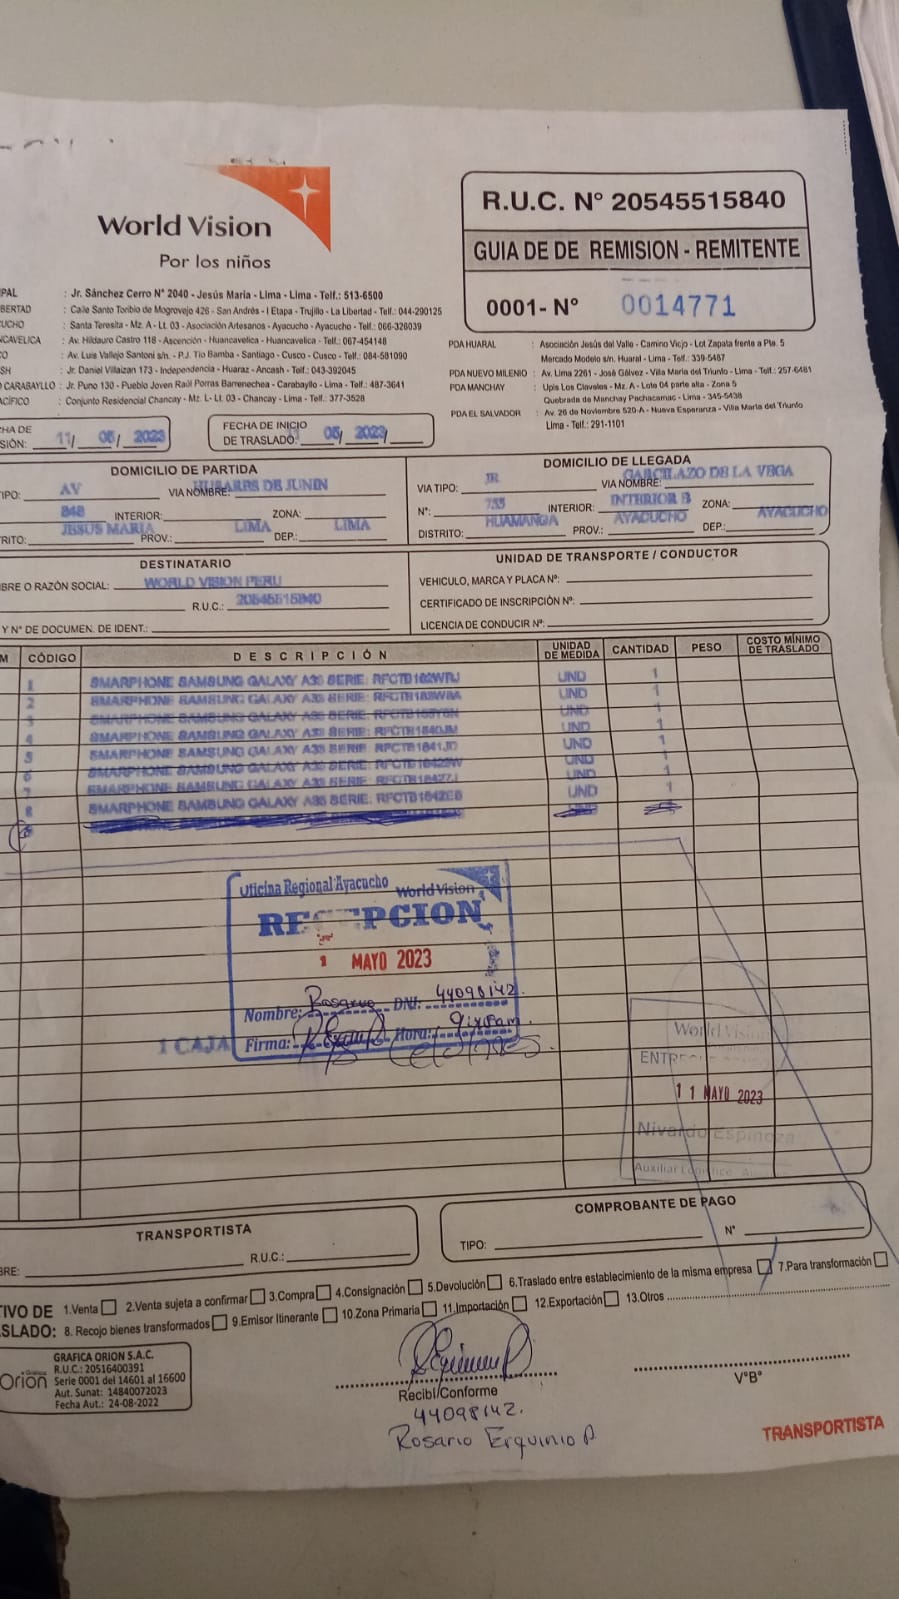 World Vision
Por los niños
R.U.C. N° 20545515840
GUIA DE DE REMISION - REMITENTE
0001- N° 0014771
PAL : Jr. Sánchez Cerro N° 2040 - Jesús Maria - Lima - Lima - Telf.: 513-6500
BERTAD : Calle Santo Toribio de Mogrovejo 426 - San Andrés - I Etapa - Trujillo - La Libertad - Telf.: 044-290125
UCHO : Santa Teresita - Mz. A - Lt. 03 - Asociación Artesanos - Ayacucho - Ayacucho - Telf.: 066-326039
NCAVELICA : Av. Hildauro Castro 118 - Ascención - Huancavelica - Huancavelica - Telf.: 067-454148
O : Av. Luis Vallejo Santoni s/n. - P.J. Tío Bamba - Santiago - Cusco - Cusco - Telf.: 084-581090
SH : Jr. Daniel Villaizan 173 - Independencia - Huaraz - Ancash - Telf.: 043-392045
CARABAYLLO : Jr. Puno 130 - Pueblo Joven Raúl Porras Barrenechea - Carabayllo - Lima - Telf.: 487-3641
ACÍFICO : Conjunto Residencial Chancay - Mz. L- Lt. 03 - Chancay - Lima - Telf.: 377-3528
PDA HUARAL : Asociación Jesús del Valle - Camino Viejo - Lot Zapata frente a Pte. 5
Mercado Modelo s/n. Huaral - Lima - Telf.: 339-5487
PDA NUEVO MILENIO : Av. Lima 2261 - José Gálvez - Villa Maria del Triunfo - Lima - Telf.: 257-6481
PDA MANCHAY : Upis Los Claveles - Mz. A - Lote 04 parte alta - Zona 5
Quebrada de Manchay Pachacamac - Lima - 345-5438
PDA EL SALVADOR : Av. 26 de Noviembre 520-A - Nueva Esperanza - Villa María del Triunfo
Lima - Telf.: 291-1101
HA DE
SIÓN: 11/ 05/ 2023
FECHA DE INICIO
DE TRASLADO: 05/ 2023/
DOMICILIO DE PARTIDA
IPO: AV VIA NOMBRE: HUSARES DE JUNIN
848 INTERIOR: ZONA:
RITO: JESUS MARIA PROV.: LIMA DEP.: LIMA
DOMICILIO DE LLEGADA
VIA TIPO: JR VIA NOMBRE: GARCILAZO DE LA VEGA
N°: 755 INTERIOR: INTERIOR B ZONA:
DISTRITO: HUAMANGA PROV.: AYACUCHO DEP.: AYACUCHO
DESTINATARIO
BRE O RAZÓN SOCIAL: WORLD VISION PERU
R.U.C.: 20545515840
Y N° DE DOCUMEN. DE IDENT.:
UNIDAD DE TRANSPORTE / CONDUCTOR
VEHICULO, MARCA Y PLACA N°:
CERTIFICADO DE INSCRIPCIÓN N°:
LICENCIA DE CONDUCIR N°:
M CÓDIGO DESCRIPCIÓN UNIDAD DE MEDIDA CANTIDAD PESO COSTO MÍNIMO DE TRASLADO
1 SMARPHONE SAMSUNG GALAXY SERIE: UND 1
2 SMARPHONE SAMSUNG GALAXY SERIE: UND 1
3 SMARPHONE SAMSUNG GALAXY SERIE: UND 1
4 SMARPHONE SAMSUNG GALAXY SERIE: UND 1
5 SMARPHONE SAMSUNG GALAXY SERIE: UND 1
6 SMARPHONE SAMSUNG GALAXY SERIE: UND 1
7 SMARPHONE SAMSUNG GALAXY SERIE: UND
8 SMARPHONE SAMSUNG GALAXY SERIE: UND 1
Oficina Regional Ayacucho World Vision
RECEPCION
1 MAYO 2023
Nombre: Rosario DNI: 44098142.
Firma: Hora:
1 CAJA
World Vision
11 MAYO 2023
Nivardo Espinoza
Auxiliar
TRANSPORTISTA
BRE: R.U.C.:
COMPROBANTE DE PAGO
TIPO: N°
TIVO DE 1.Venta 2.Venta sujeta a confirmar 3.Compra 4.Consignación 5.Devolución 6.Traslado entre establecimiento de la misma empresa 7.Para transformación
SLADO: 8. Recojo bienes transformados 9.Emisor Itinerante 10.Zona Primaria 11.Importación 12.Exportación 13.Otros
Gráfica Orion
GRAFICA ORION S.A.C.
R.U.C.: 20516400391
Serie 0001 del 14601 al 16600
Aut. Sunat: 14840072023
Fecha Aut.: 24-08-2022
Recibí/Conforme
44098142.
Rosario Erquinio P
V°B°
TRANSPORTISTA